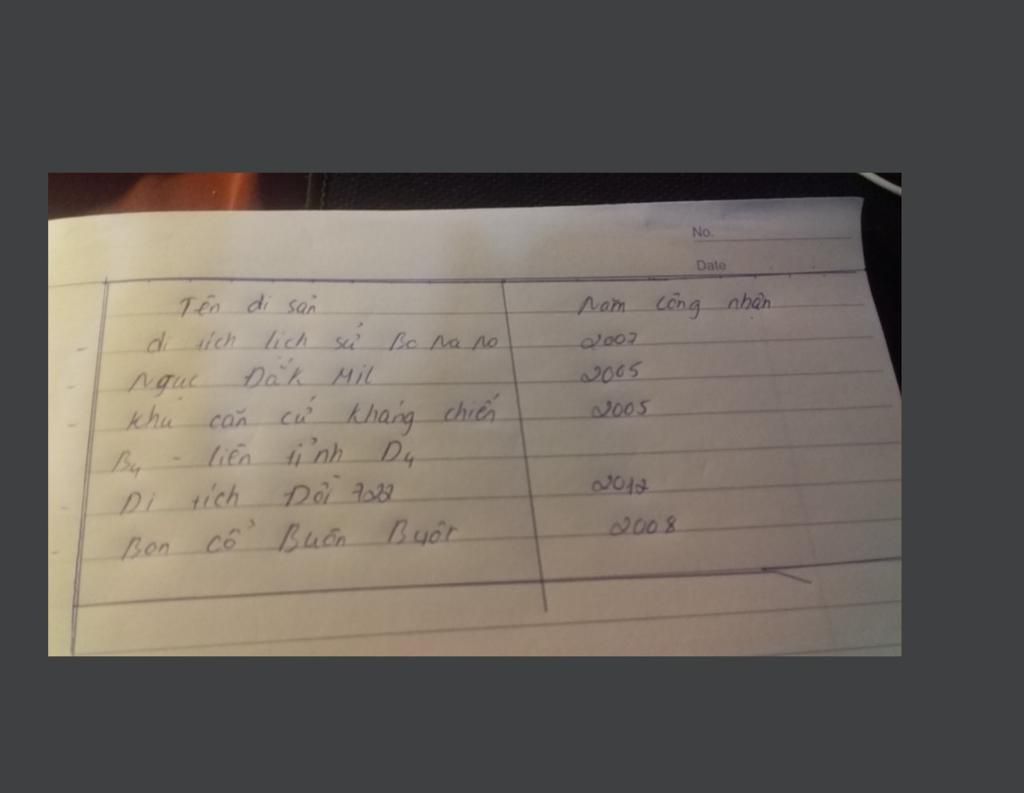 No.
Date
Tên di sản Nam công nhận
di tích lich sử Bo Na No 2007
Nguc Đắk Mil 2005
Khu căn cứ kháng chiến 2005
B4 - liên tỉnh D4
Di tích Đồi 722 2012
Bon cổ Buôn Buôr 2008